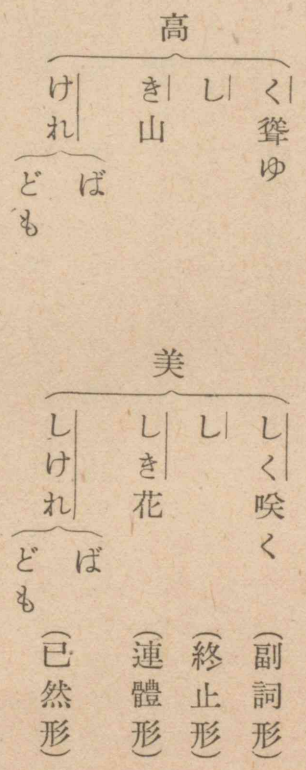 高
く聳ゆ
し
き山
けれ
ば
ども
美
しく咲く
し
しき花
しけれ
ば
ども
(副詞形)
(終止形)
(連體形)
(已然形)